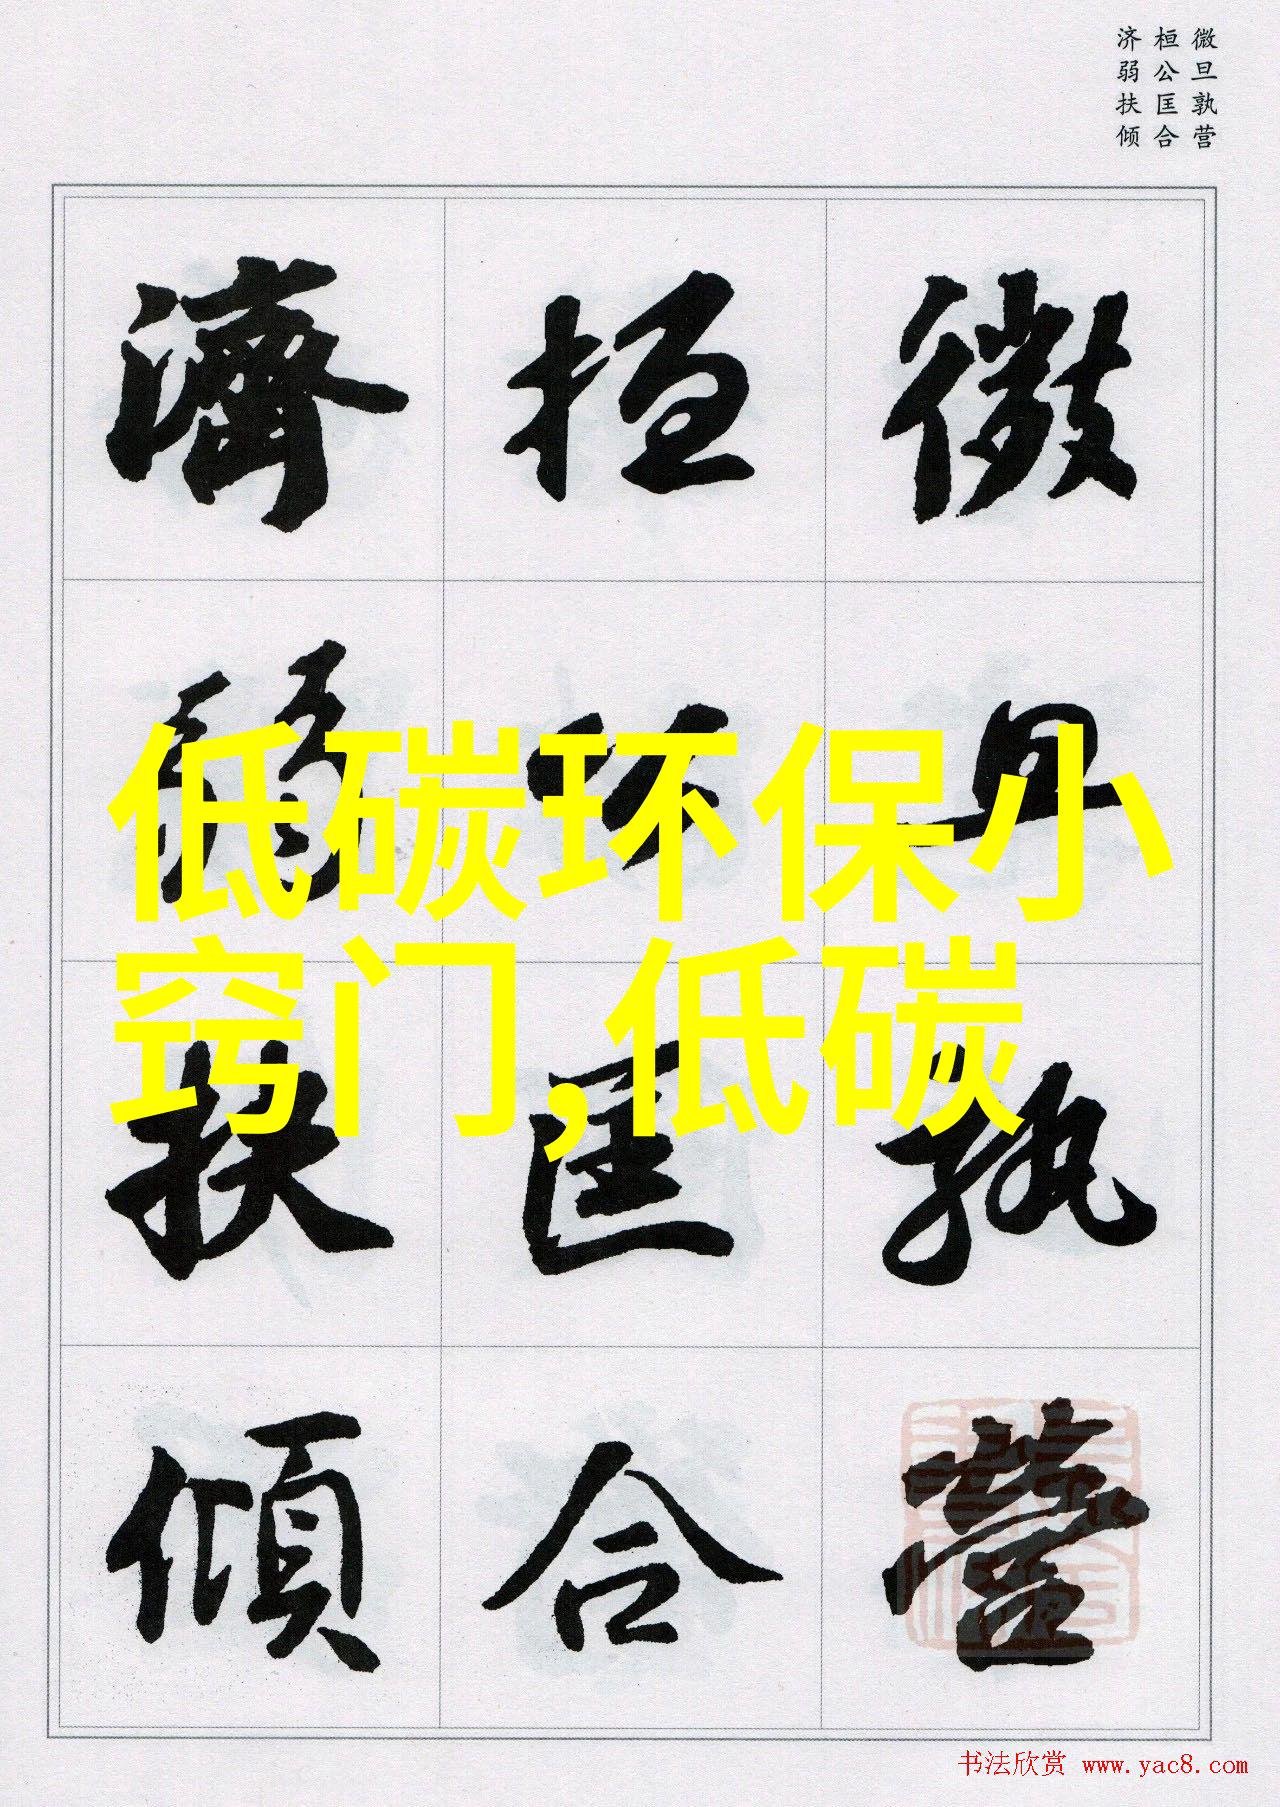 微旦孰营
桓公匡合
济弱扶倾
微旦孰營
桓公匡合
濟弱扶傾
低碳环保小
窍门,低碳
书法欣赏 www.yac8.com